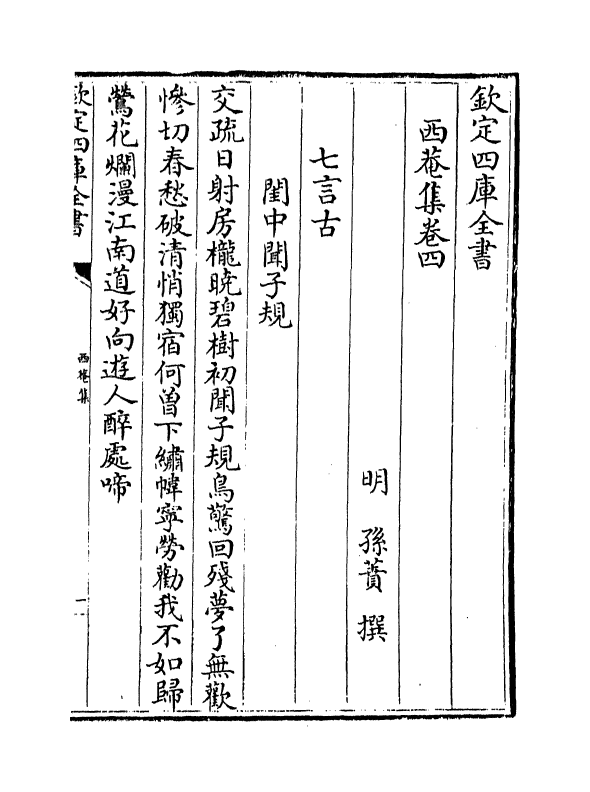 欽定四庫全書
西菴集卷四
明　孫蕡　撰
七言古
閨中聞子規
交疏日射房櫳曉碧樹初聞子規鳥驚回殘夢了無歡
慘切春愁破清悄獨宿何曽下繡幃寧勞勸我不如歸
鶯花爛漫江南道好向遊人醉處啼
欽定四庫全書
西菴集
一